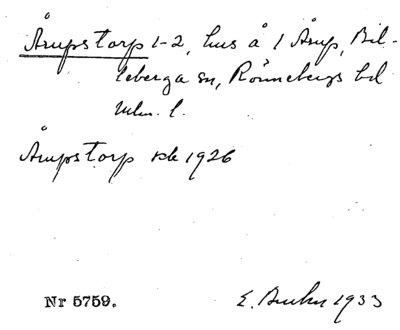 Årupstorp 1-2, hus å 1 Årup, Bil-
leberga sn, Rönnebergs hd
Mlm. l.
Årupstorp rbk 1926
Nr 5759.
E. 1933